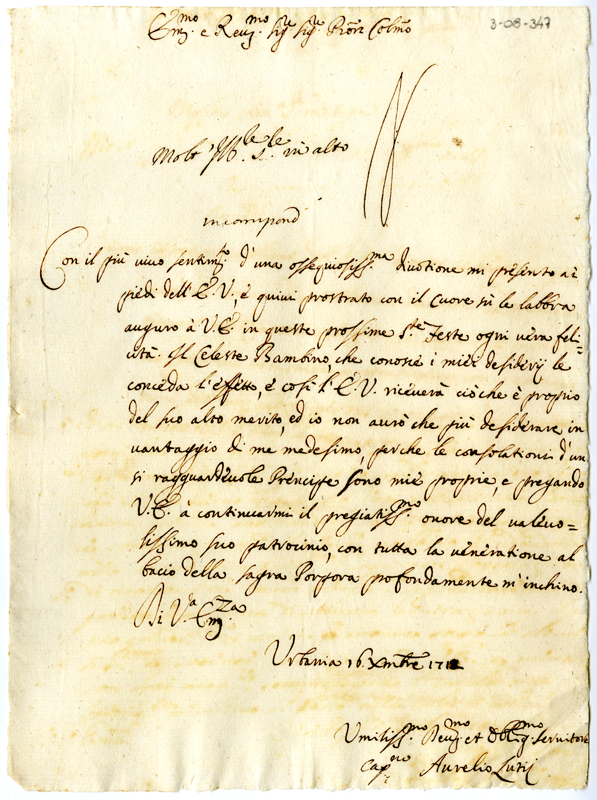 3-08-347
Em.mo e Reu.mo Sig.r Sig.r P̃ron Colmo
in alto
in corrispond
Con il più viuo sentim.to d'una ossequiosiss.ma diuotione mi presento a i
piedi dell'E. V., e quiui prostrato con il cuore sù le labbra
auguro à V. E. in queste prossime S.te Feste ogni uera feli=
cità. Il Celeste Bambino, che conosce i miei desiderij le
conceda l'effetto, e così l'E. V. riceuerà ciò che è proprio
del suo alto merito, ed io non aurò che più desiderare in
uantaggio di me medesimo, perche le consolationi d'un
si ragguardeuole Principe sono mie proprie, e pregando
V. E. à continuarmi il pregiatiss.mo onore del ualeuo=
lissimo suo patrocinio, con tutta la ueneratione al
bacio della sagra Porpora profondamente m'inchino.
Di V.a Em.za
Urbania 16 Xmbre
Umiliss.mo Deu.mo et Obblig.mo Seruitore
Cap.no Aurelio Lutij